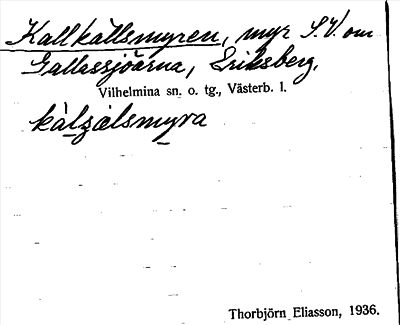 Kallkällsmyren, myr S.V. om
Gallassjöarna, Eriksberg.
Vilhelmina sn. o. tg., Västerb. l.
kàlʒälsmyra
Thorbjörn Eliasson, 1936.